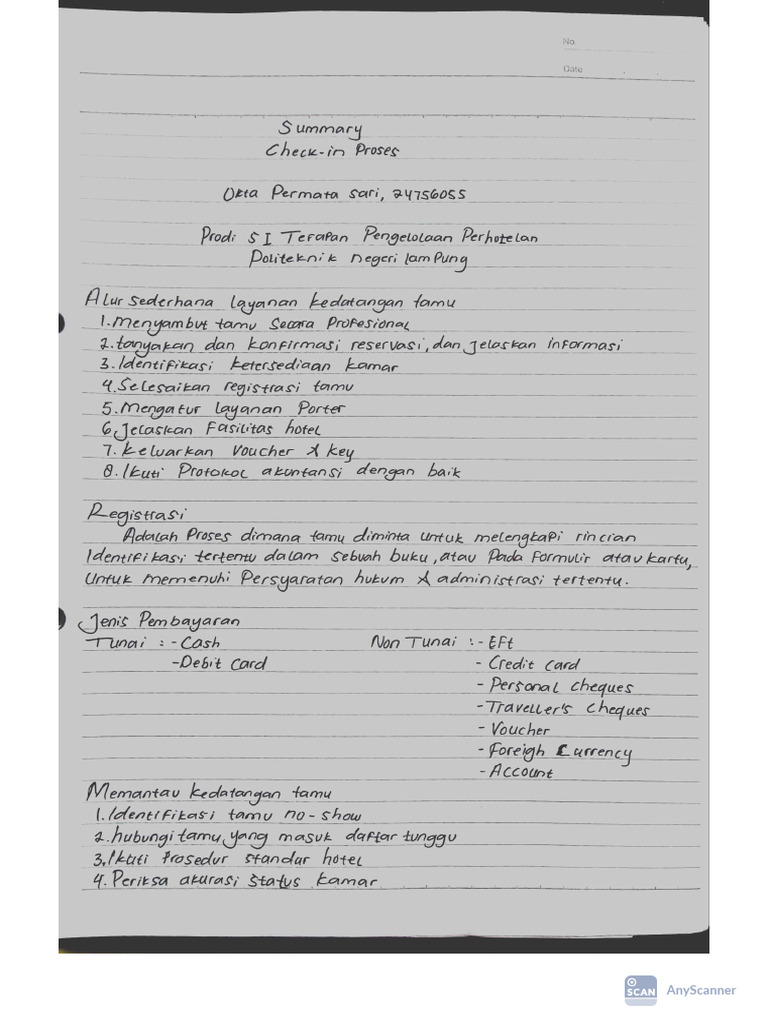 No.
Date
Summary
Check-in Proses
Okta Permata sari, 24756055
Prodi S I Terapan Pengelolaan Perhotelan
Politeknik negeri lampung
Alur sederhana layanan kedatangan tamu
1. Menyambut tamu secara Profesional
2. tanyakan dan konfirmasi reservasi, dan jelaskan informasi
3. Identifikasi ketersediaan kamar
4. Selesaikan registrasi tamu
5. Mengatur layanan Porter
6. Jelaskan Fasilitas hotel
7. Keluarkan Voucher & key
8. Ikuti Protokol akuntansi dengan baik
Registrasi
Adalah Proses dimana tamu diminta untuk melengkapi rincian
Identifikasi tertentu dalam sebuah buku, atau Pada formulir atau kartu,
Untuk memenuhi Persyaratan hukum & administrasi tertentu.
Jenis Pembayaran
Tunai : - Cash Non Tunai : - Eft
- Debit Card - Credit card
- Personal cheques
- Traveller's cheques
- Voucher
- Foreigh Currency
- Account
Memantau kedatangan tamu
1. Identifikasi tamu no-show
2. hubungi tamu, yang masuk daftar tunggu
3. Ikuti Prosedur standar hotel
4. Periksa akurasi status kamar
SCAN AnyScanner